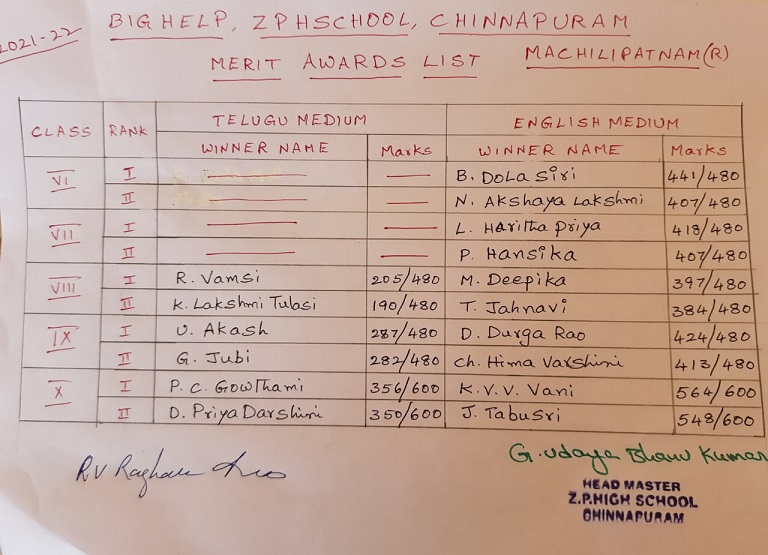 2021-22
BIG HELP, ZPHSCHOOL, CHINNAPURAM
MERIT AWARDS LIST MACHILIPATNAM(R)
CLASS RANK TELUGU MEDIUM ENGLISH MEDIUM
WINNER NAME Marks WINNER NAME Marks
VI I — — B. Dola Siri 441/480
II — — N. Akshaya Lakshmi 407/480
VII I — — L. Haritha Priya 418/480
II — — P. Hansika 407/480
VIII I R. Vamsi 205/480 M. Deepika 397/480
II K. Lakshmi Tulasi 190/480 T. Jahnavi 384/480
IX I U. Akash 287/480 D. Durga Rao 424/480
II G. Jubi 282/480 Ch. Hima Varshini 413/480
X I P. C. Gowthami 356/600 K.V.V. Vani 564/600
II D. Priya Darshini 350/600 J. Tabusri 548/600
RV Raghava
G. Udaya Bhanu Kumar
HEAD MASTER
Z.P.HIGH SCHOOL
CHINNAPURAM